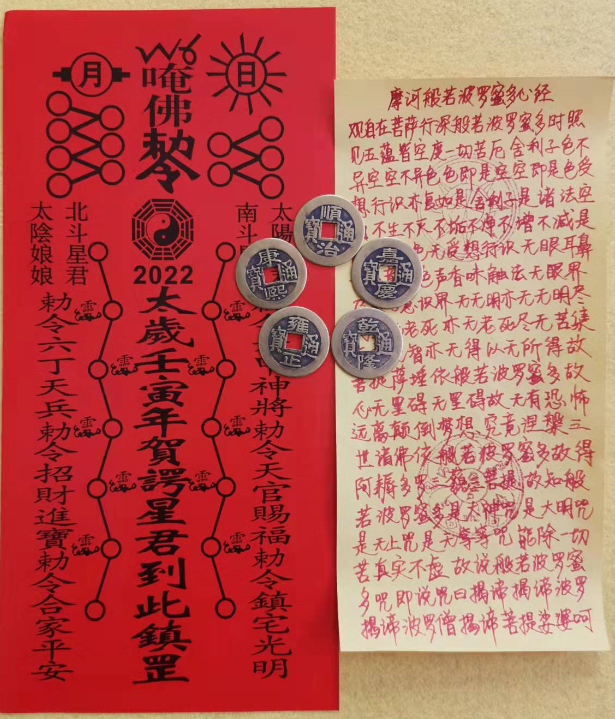 月
日
唵佛勅令
北斗星君
太陰娘娘
南斗
太陽
2022
太歲壬寅年賀諤星君到此鎮罡
勅令六丁天兵勅令招財進寶勅令合家平安
神將勅令天官賜福勅令鎮宅光明
順治通寶
康熙通寶
嘉慶通寶
雍正通寶
乾隆通寶
摩诃般若波罗蜜多心经
观自在菩萨行深般若波罗蜜多时照
见五蕴皆空度一切苦厄舍利子色不
异空空不异色色即是空空即是色受
想行识亦复如是舍利子是诸法空
不生不灭不垢不净不增不减是
色无受想行识无眼耳鼻
色声香味触法无眼界
识界无无明亦无无明尽
老死亦无老死尽无苦集
智亦无得以无所得故
菩提萨埵依般若波罗蜜多故
心无罣碍无罣碍故无有恐怖
远离颠倒梦想究竟涅槃三
世诸佛依般若波罗蜜多故得
阿耨多罗三藐三菩提故知般
若波罗蜜多是大神咒是大明咒
是无上咒是无等等咒能除一切
苦真实不虚故说般若波罗蜜
多咒即说咒曰揭谛揭谛波罗
揭谛波罗僧揭谛菩提娑婆诃